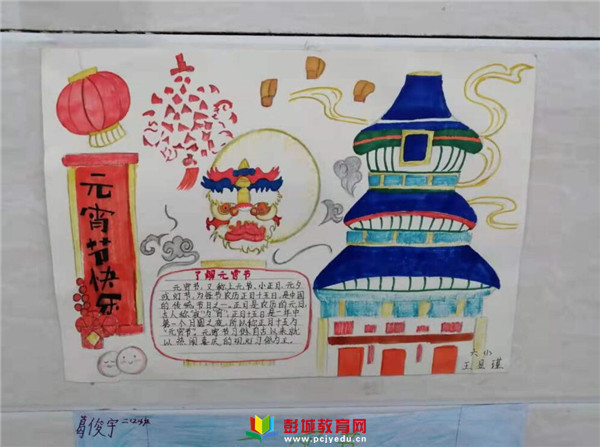 元宵节快乐
了解元宵节
元宵节,又称上元节、小正月、元夕
或灯节,为每节农历正月十五日,是中国
的传统节日之一,正月是农历的元月,
古人称"夜"为"宵",正月十五日是一年中
第一个月圆之夜,所以称正月十五为
"元宵节"。元宵节习俗自古以来就
以热闹喜庆的观灯习俗为主。
王
葛俊宇
彭城教育网
www.pcjyedu.cn